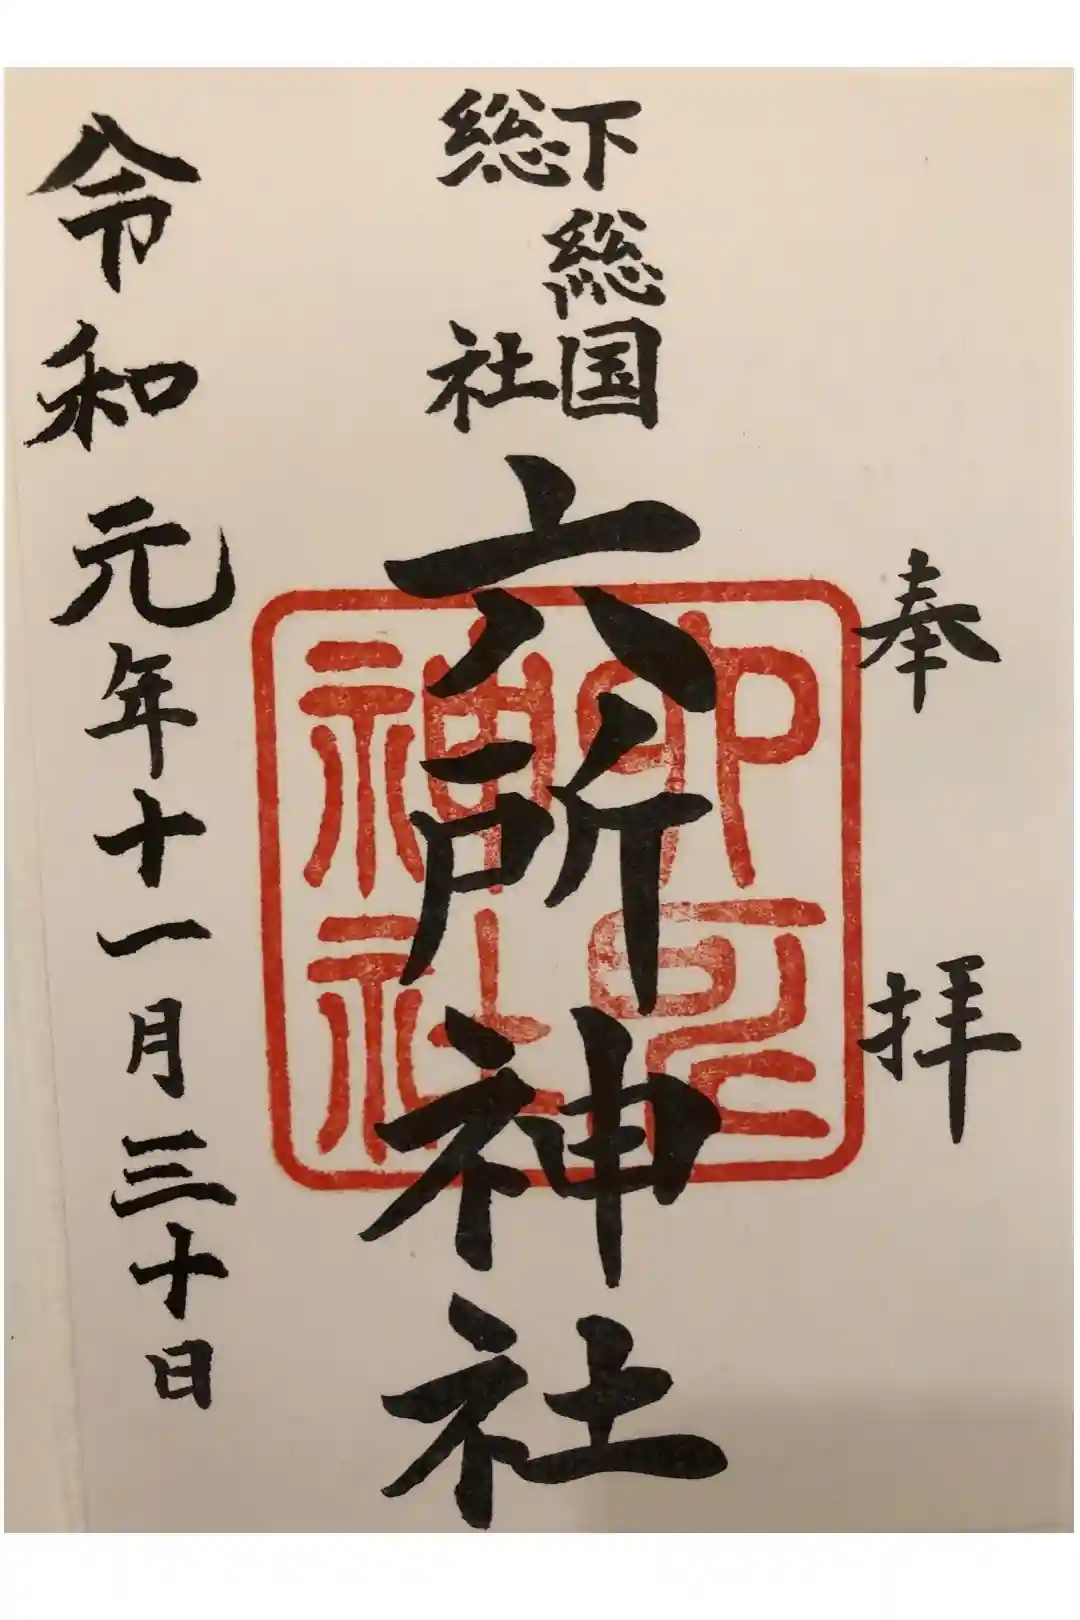 奉拝
下総国
総社
六所神社
神社
令和元年十一月三十日